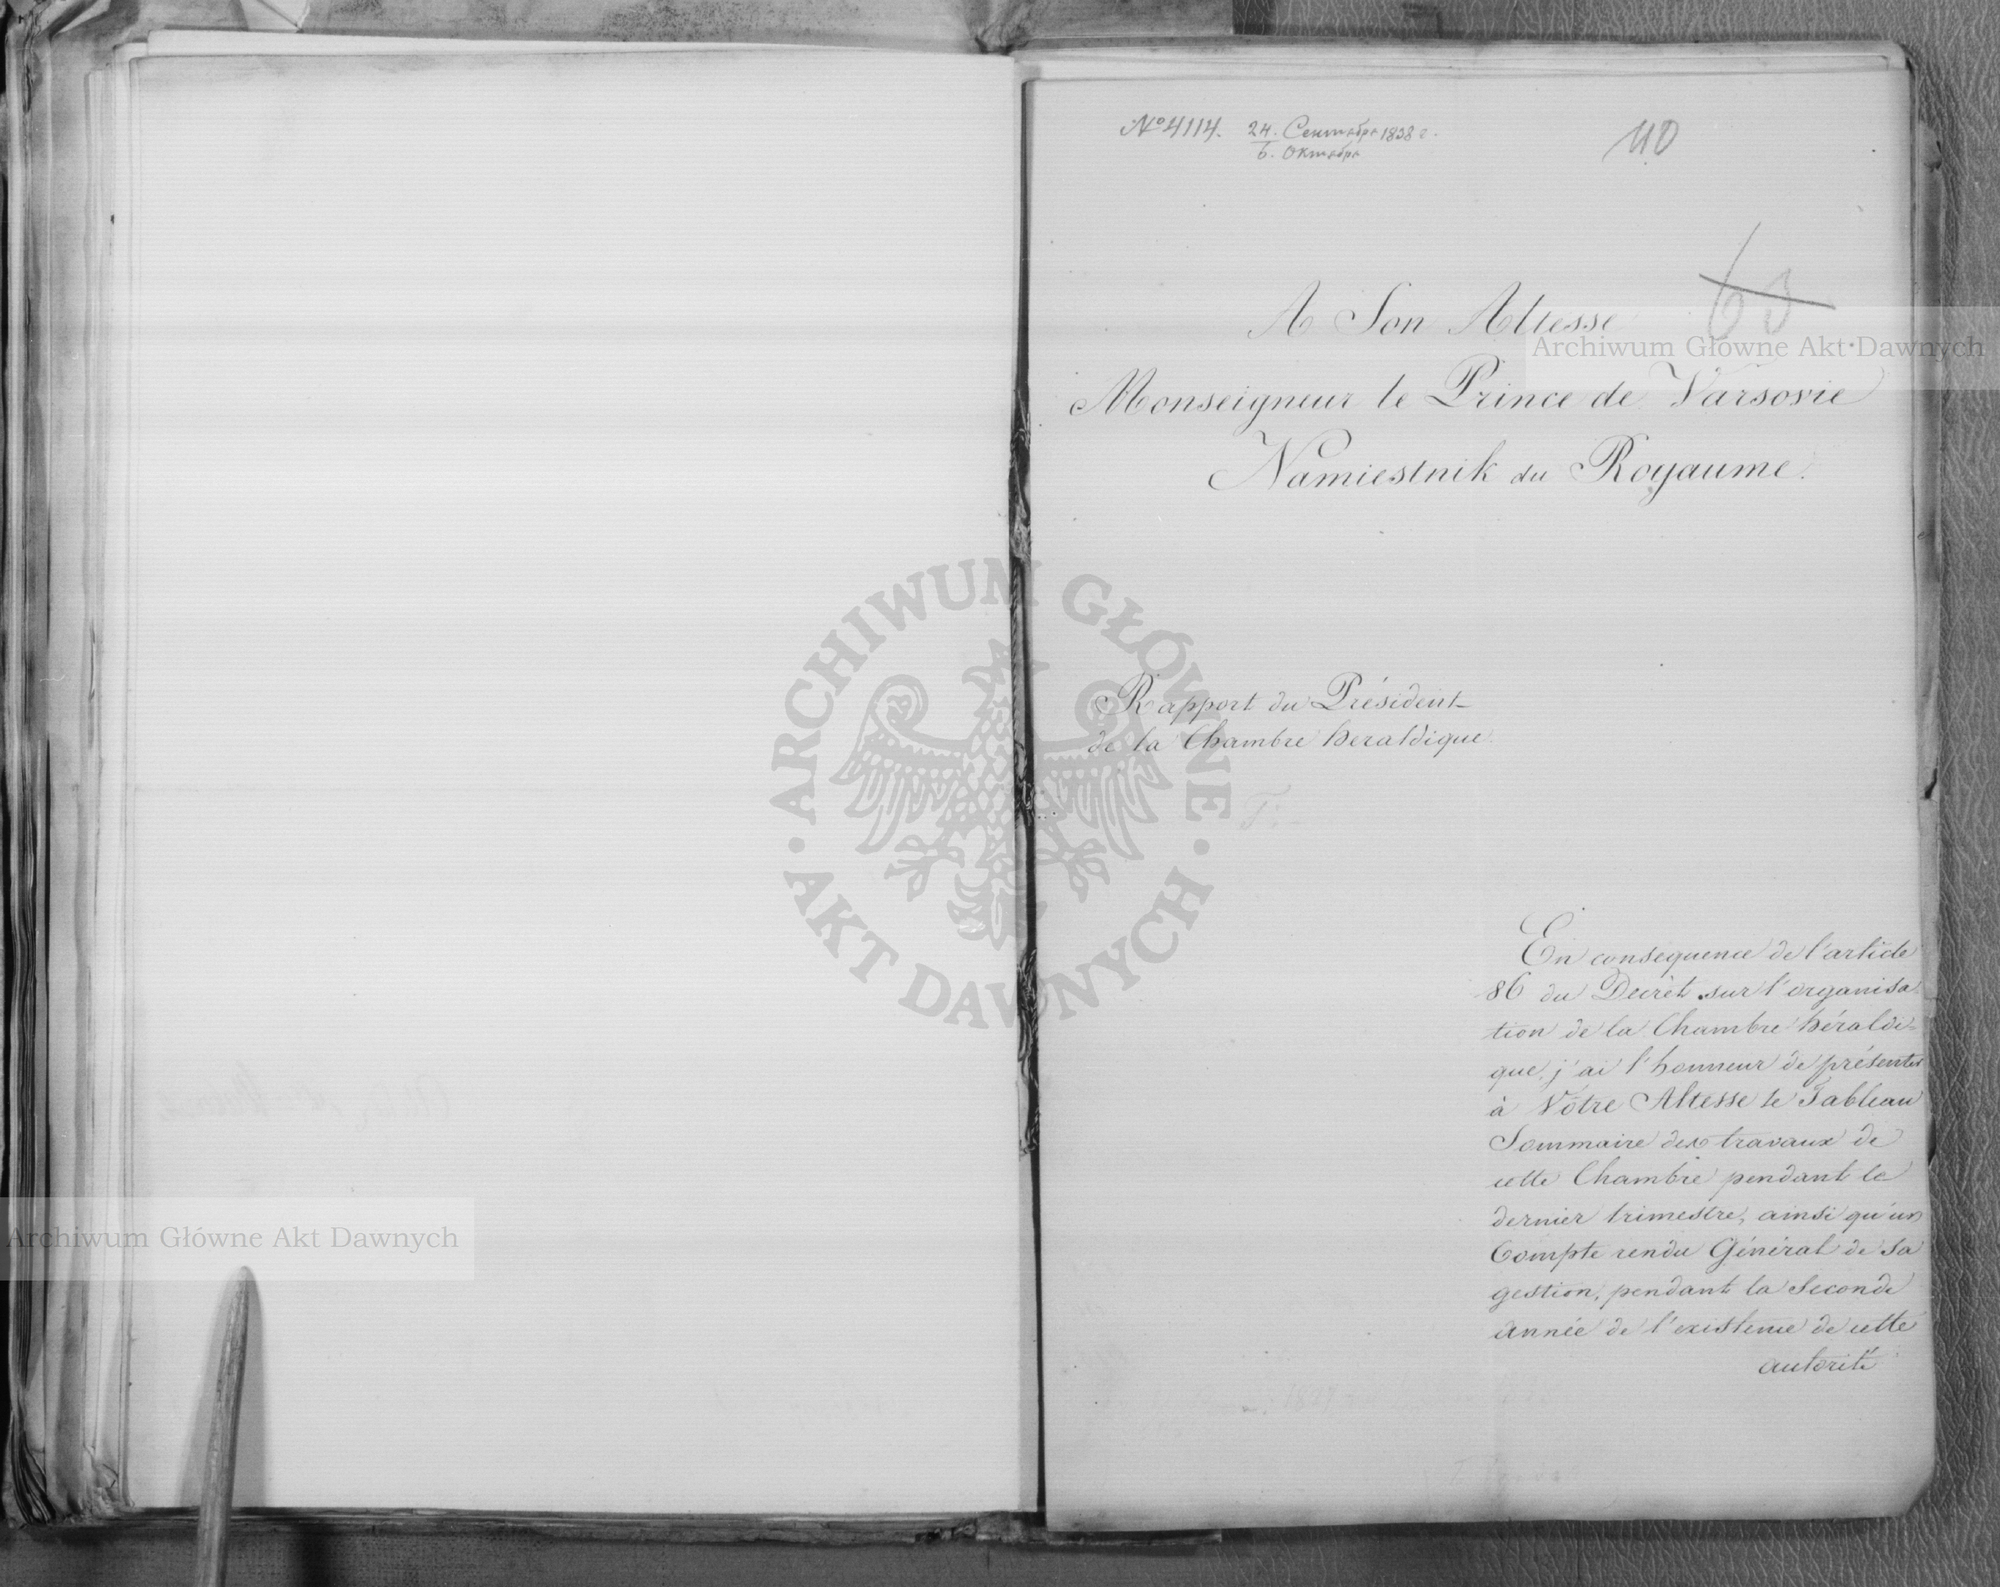 № 4114. 24. Сентября 1838 г.
6. Октября
110
63
A Son Altesse
Monseigneur le Prince de Varsovie
Namiestnik du Royaume.
Rapport du Président
de la Chambre heraldique.
En consequence de l'article
86 du Decrèt sur l'organisa-
tion de la Chambre héraldi-
que, j'ai l'honneur de présenter
à Vôtre Altesse le Tableau
Sommaire des travaux de
cette Chambre pendant le
dernier trimestre, ainsi qu'un
Compte rendu Général de sa
gestion, pendant la Seconde
année de l'existence de cette
autorité
Archiwum Główne Akt Dawnych
ARCHIWUM GŁÓWNE
AKT DAWNYCH
Archiwum Główne Akt Dawnych